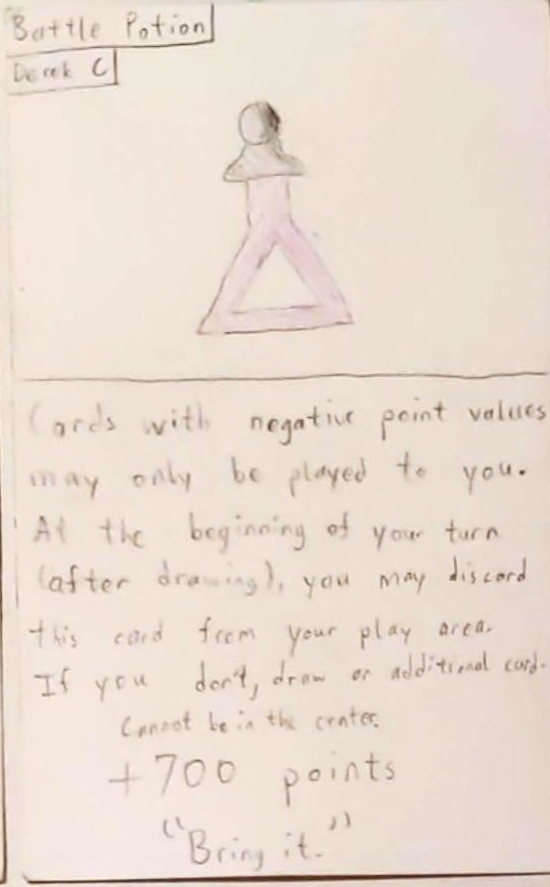 Battle Potion
Derek C
Cards with negative point values
may only be played to you.
At the beginning of your turn
(after drawing), you may discard
this card from your play area.
If you don't, draw an additional card.
Cannot be in the center.
+700 points
"Bring it."